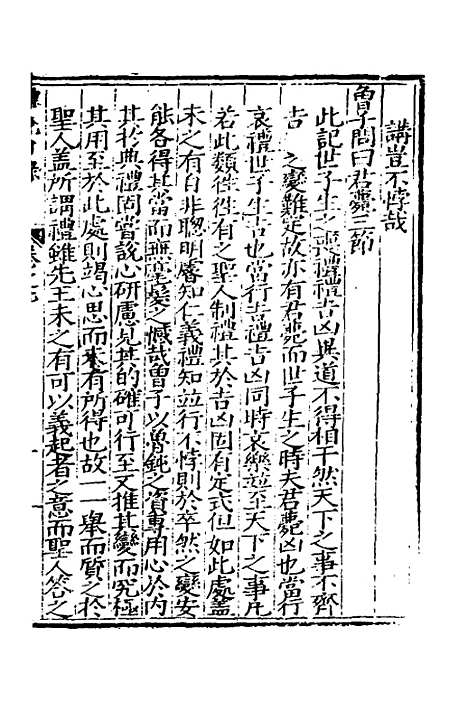 講豈不悖哉
曾子問曰君薨三節
此記世子生之喪禮禮吉凶異道不得相干然天下之事不齊
吉 之變難定故亦有君薨而世子生之時夫君薨凶也當行
哀禮世子生吉也當行吉禮吉凶同時哀樂並至天下之事凡
若此類徃徃有之聖人制禮其於吉凶固有定式但如此處蓋
未之有自非聰明睿知仁義禮知並行不悖則於卒然之變安
能各得其當而無毫髮之憾哉曾子以魯鈍之資專用心於內
其於典禮固嘗說心研慮見其的確可行至又推其變而究極
其用至於此處則竭心思而未有所得也故一一舉而質之於
聖人蓋所謂禮雖先王未之有可以義起者之意而聖人答之